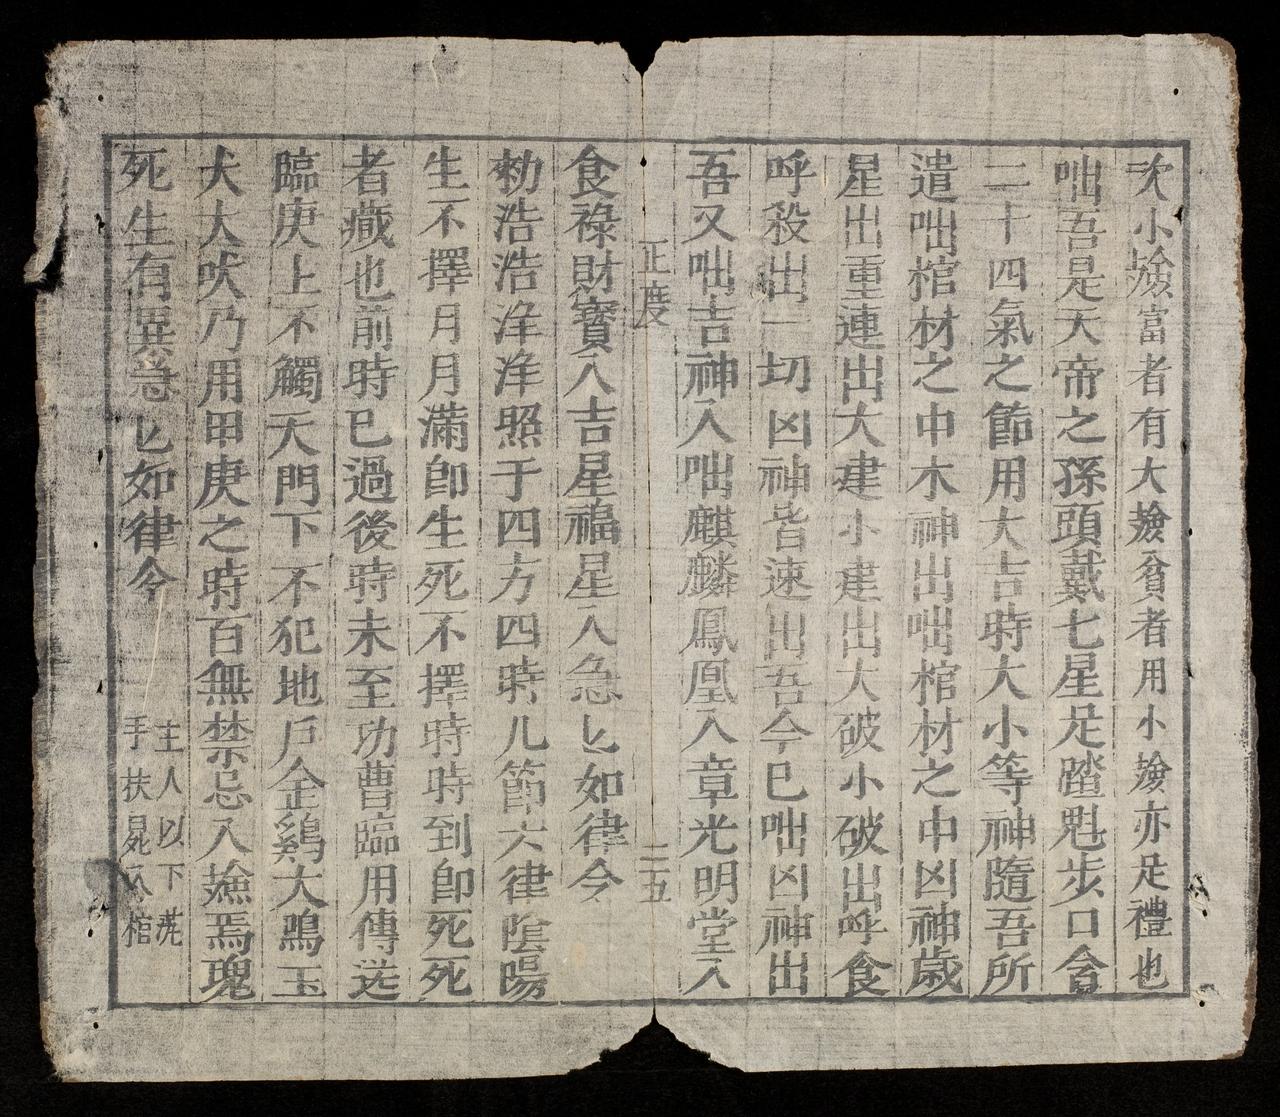 次小殮富者有大殮貧者用小殮亦足禮也
咄吾是天帝之孫頭戴七星足踏魁步口含
二十四氣之節用大吉時大小等神隨吾所
遣咄棺材之中木神出咄棺材之中凶神歲
星出重連出大建小建出大破小破出呼食
呼殺出一切凶神皆速出吾今巳咄凶神出
吾又咄吉神入咄麒麟鳳凰入章光明堂入
正度
二五
食祿財寳入吉星福星入急〻如律令
勑浩浩洋洋照于四方四時八節六律陰陽
生不擇月月滿卽生死不擇時時到卽死死
者藏也前時巳過後時未至功曹臨用傳送
臨庚上不觸天門下不犯地户金鷄大鳴玉
犬大吠乃用甲庚之時百無禁忌入殮焉魂
死生有異急〻如律令
主人以下洗
手扶屍入棺